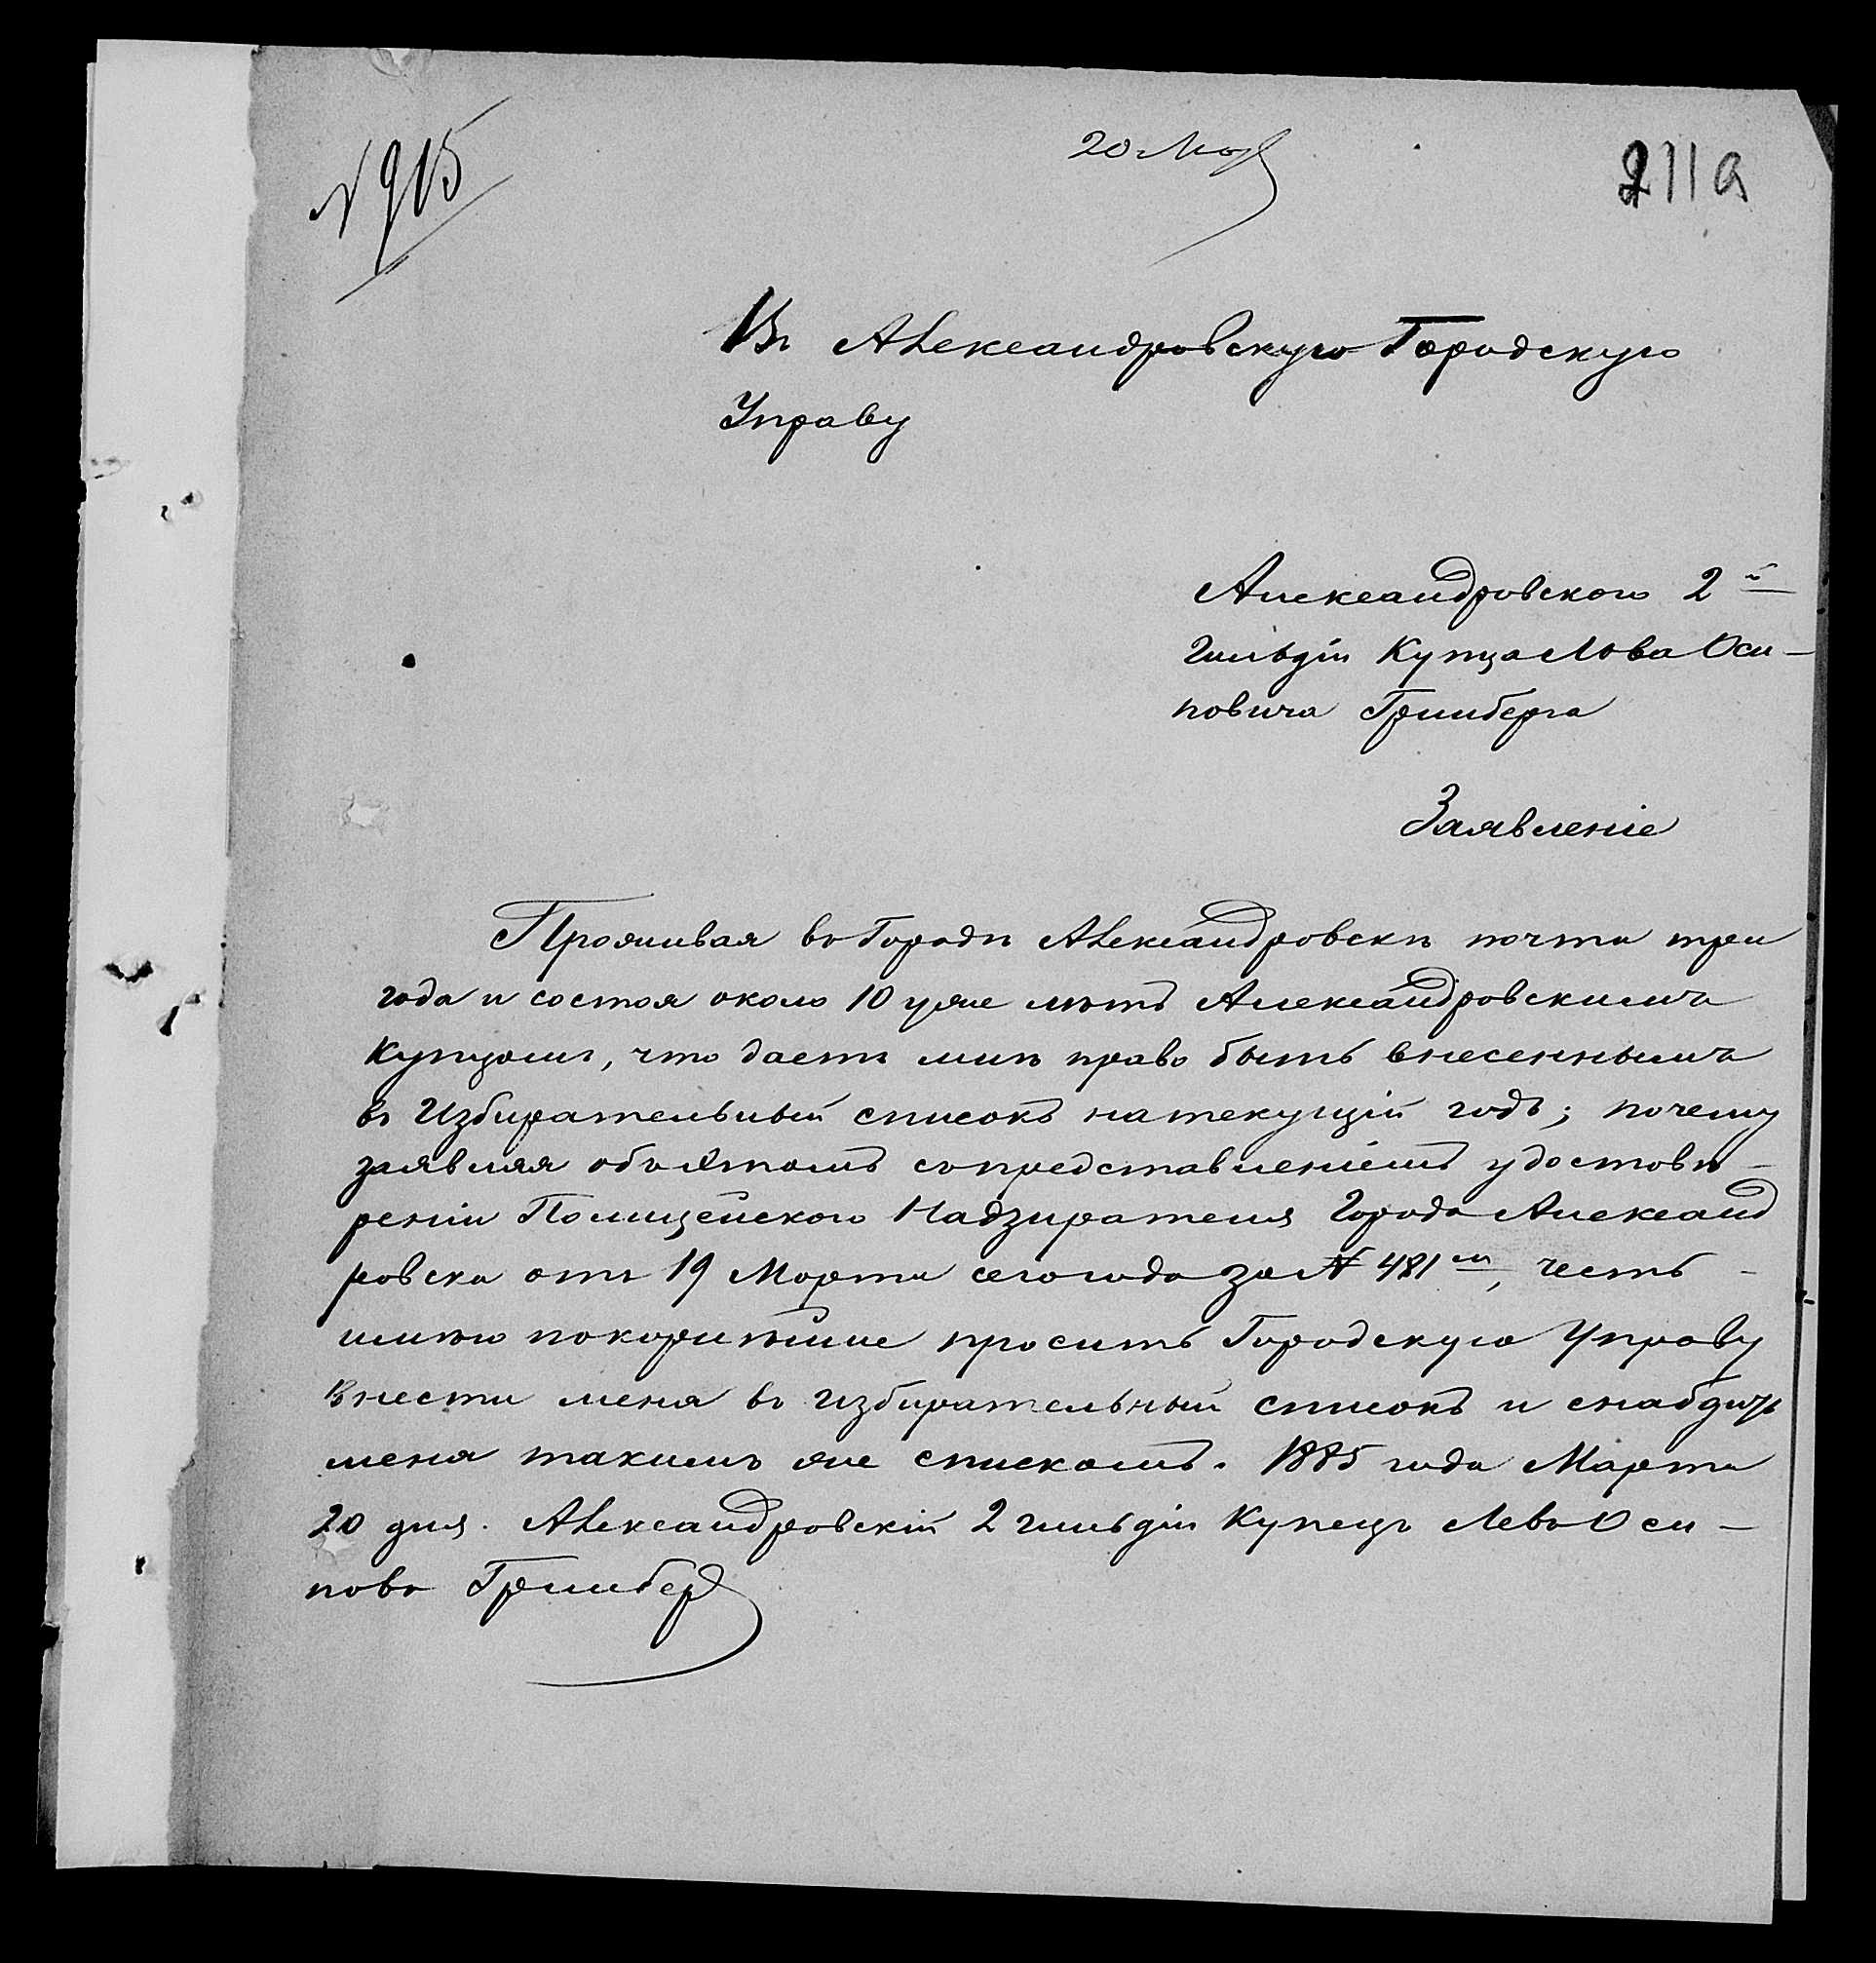 № 915
20 Мар
211а
Въ Александровскую Городскую
Управу
Александровскаго 2й
гильдіи Купца Лева Оси-
повича Гринберга
Заявленіе
Проживая въ Городѣ Александровскѣ почти три
года и состоя около 10 уже лѣтъ Александровскимъ
Купцомъ, что даетъ мнѣ право быть внесеннымъ
въ Избирательный списокъ на текущій годъ; почему
заявляя объ этомъ съ представленіемъ удостовѣ-
ренія Полицейского Надзирателя Города Александ
ровска отъ 19 Марта сего года за № 481м, честь
имѣю покорнѣйше просить Городскую Управу
внести меня въ избирательный списокъ и снабдить
меня такимъ же спискомъ. 1885 года Марта
20 дня. Александровскій 2 гильдіи Купецъ Левъ Оси-
повъ Гринберг